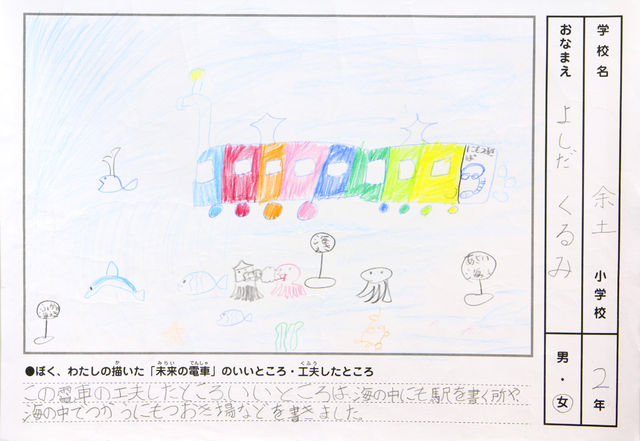 学校名 余土 小学校
おなまえ よしだ くるみ
男・女 2年
にもつおき
ば
●ぼく、わたしの描いた「未来の電車」のいいところ・工夫したところ
この電車の工夫したところいいところは、海の中にも駅を書く所や
海の中でつかうにもつおき場などを書きました。